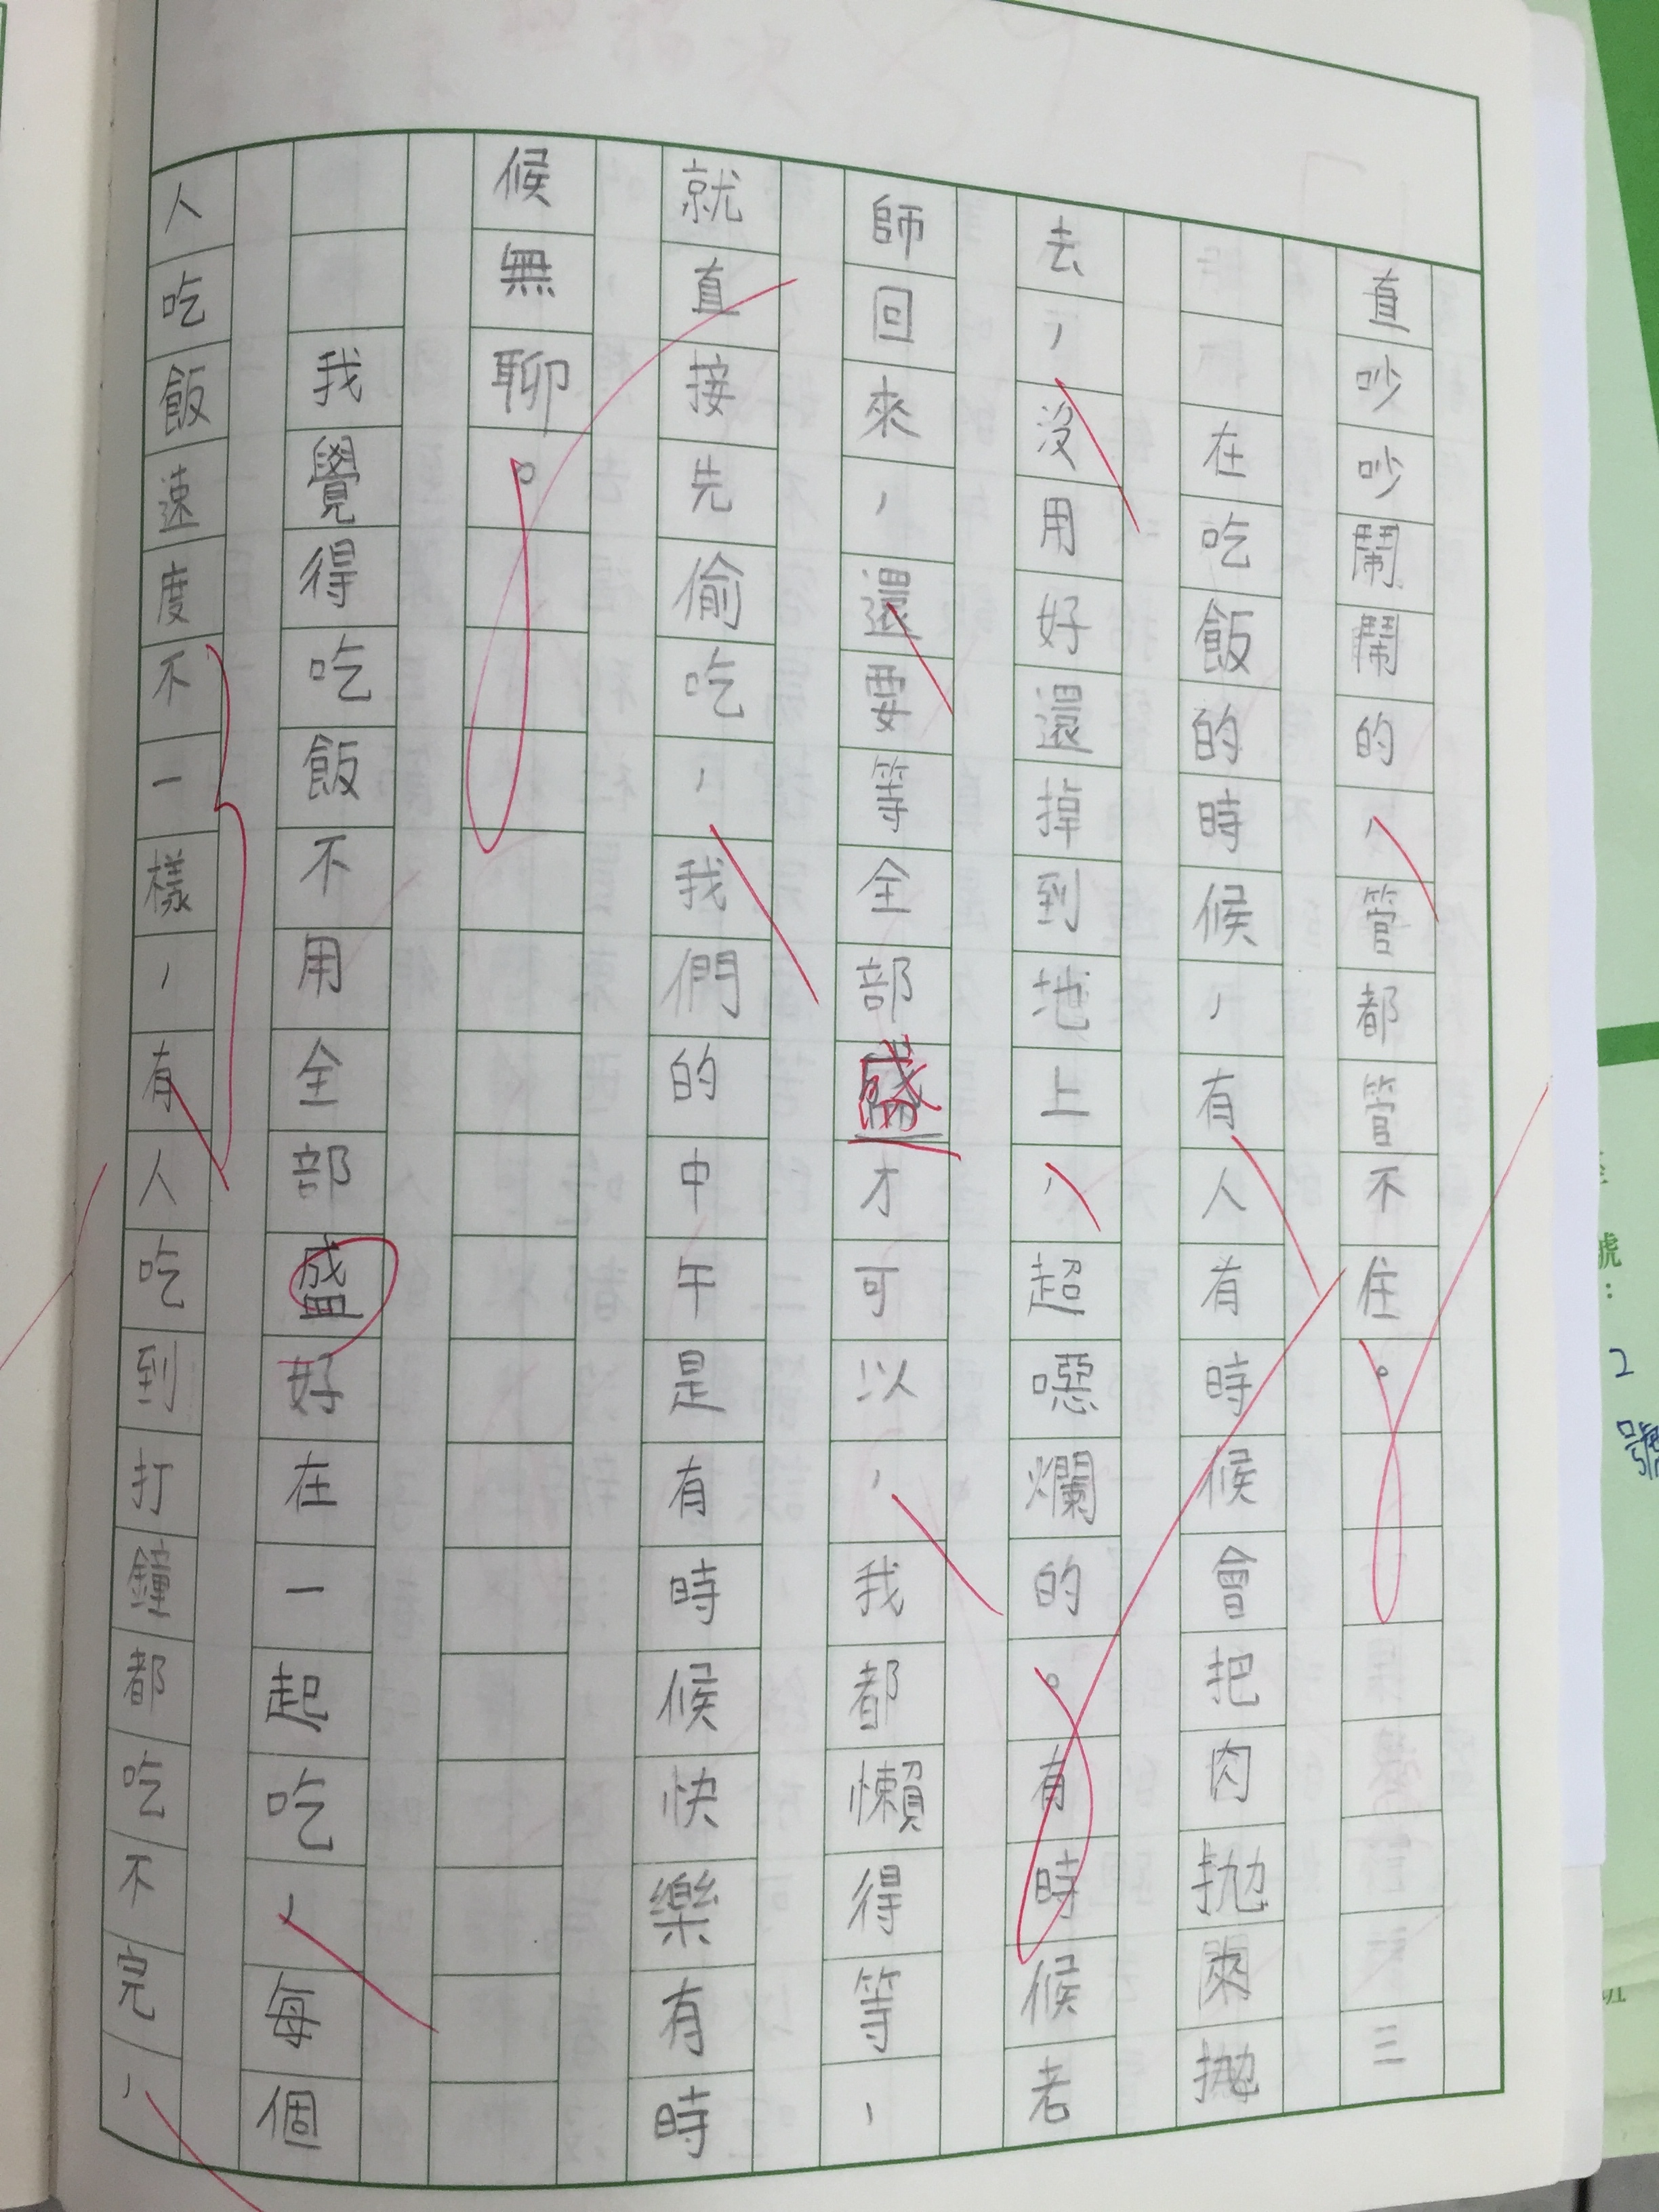 直吵吵鬧鬧的，管都管不住。三
在吃飯的時候，有人有時候會把肉拋來拋
去，沒用好還掉到地上，超噁爛的。有時候老
師回來，還要等全部盛才可以，我都懶得等，
就直接先偷吃，我們的中午是有時候快樂有時
候無聊。
我覺得吃飯不用全部盛好在一起吃，每個
人吃飯速度不一樣，有人吃到打鐘都吃不完，
號：
2
號